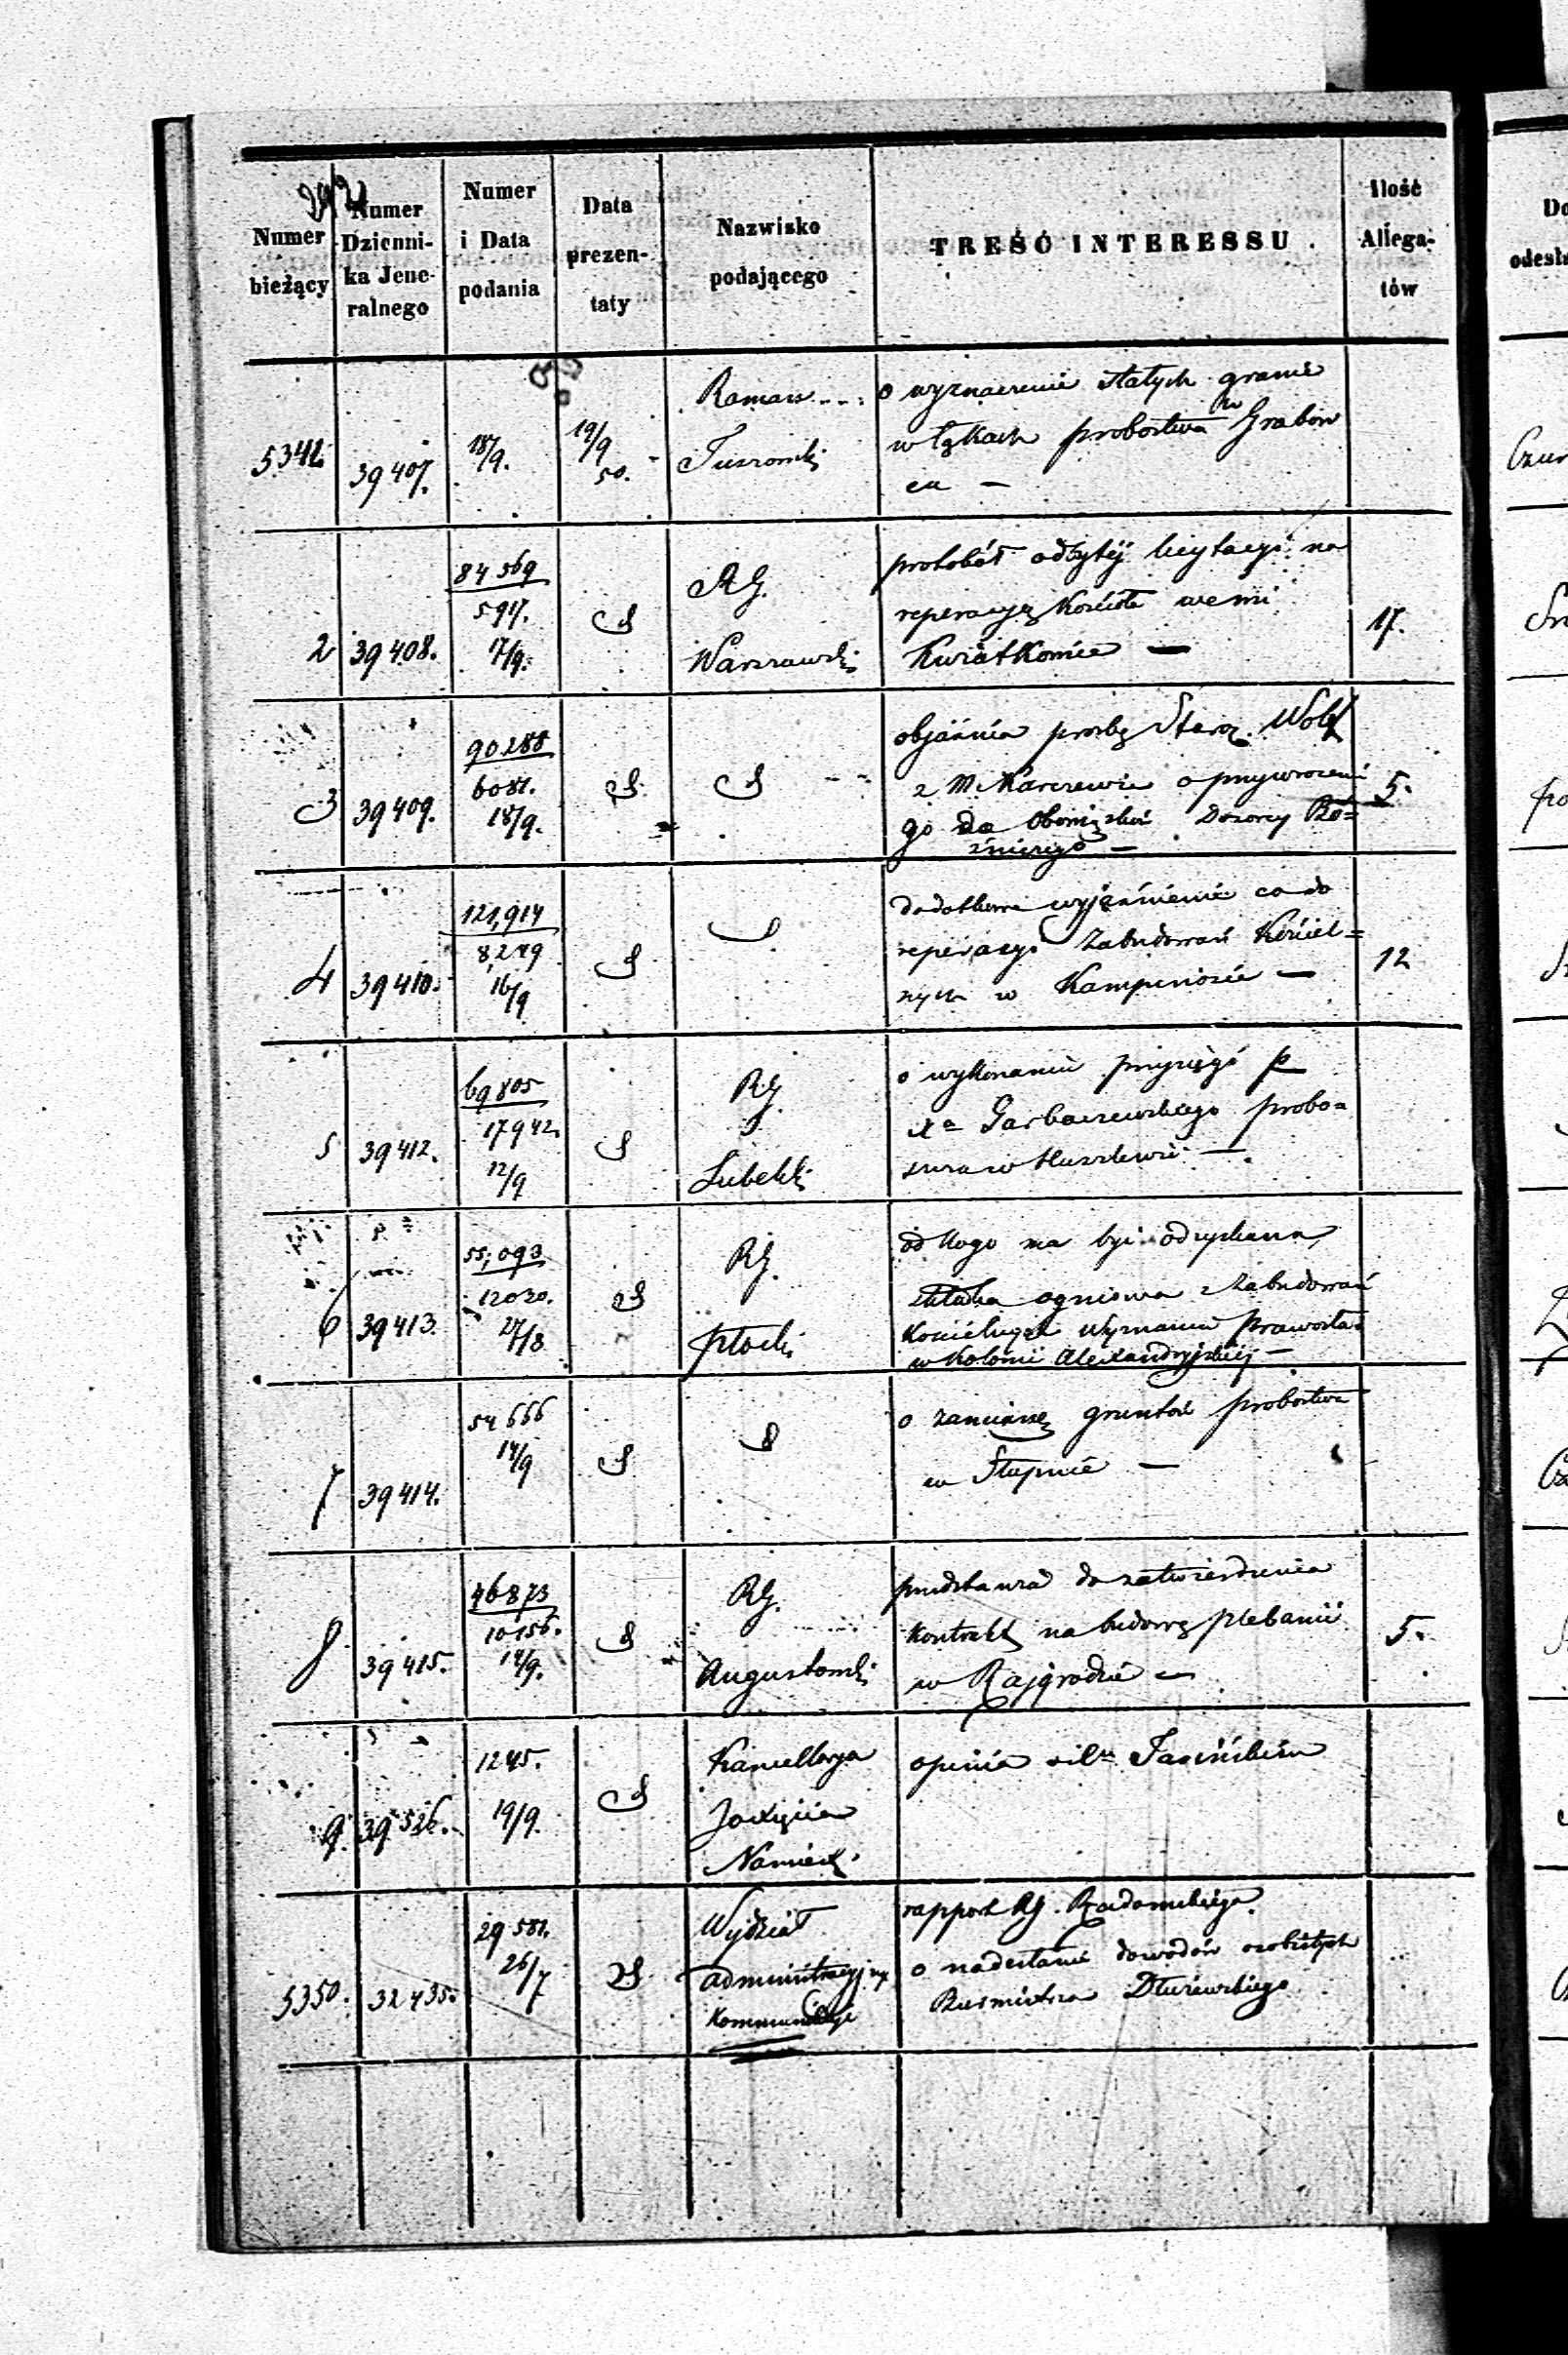 Numer bieżący
Numer Dzienni- ka Jene- ralnego
Numer i Data podania
Data prezen- taty
Nazwisko podającego
TREŚĆ INTERESSU.
Ilość Allega- tów
5341. 39407. 18/9. 19/9 50. Roman
o wyznaczenie stałych granic
w łąkach probostwa w Grabow
cu —
2 39408. 84569 597. 17/9. RG. Warszawski
protokół odbytéj licytacyi na
reperacyę Kościoła we wsi
Kwiatkowice — 17.
3 39409. 90288 6081. 18/9.
objaśnia prozbę Staroz. Wolf
z M Karczewie o przywrócenie
go do Obowiązków Dozorcy Bó=
żniczego — 5.
4 39410. 121,914 8,279 16/9
dodatkowe wyjaśnienie co do
reperacyi Zabudowań Kościel=
nych w Kampinosie — 12
5 39412. 69805 17942. 12/9 RG. Lubelski
o wykonaniu przysięgi p
Xa Garbaczewskiego probo=
szcza w Huszlewie —.
6 39413. 55,093 12030. 27/8 RG. Płocki
od kogo ma być odzyskana
składka ogniowa z Zabudowań
Kościelnych wyznania prawosła:
w Kolonii Alexandryjskiej —
7 39414. 54666 14/9
o zamianę gruntów probostwa
w Słupnie —
8 39415. 46873 10156. 14/9. RG. Augustowski
przedstawia do zatwierdzenia
Kontrakt na budowę plebanii
w Rajgrodzie — 5.
9. 39526. 1245. 19/9. Kancellarya Namiest.
opinia
5350. 32435. 29581. 26/7 Wydział administracyjny Kommunikuje
rapport RG. Radomskiego
o nadesłanie dowodów osobistych
Burmistrza Dłużewskiego